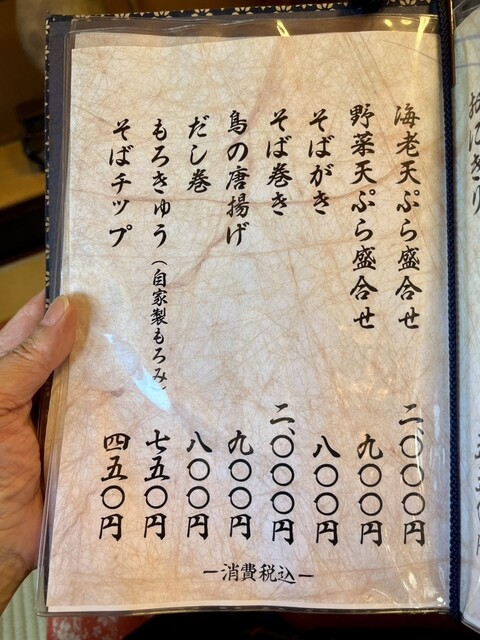 海老天ぷら盛合せ 二、〇〇〇円
野菜天ぷら盛合せ 九〇〇円
そばがき 八〇〇円
そば巻き 二、〇〇〇円
鳥の唐揚げ 九〇〇円
だし巻 八〇〇円
もろきゅう（自家製もろみ） 七五〇円
そばチップ 四五〇円
ー消費税込ー
おにぎり